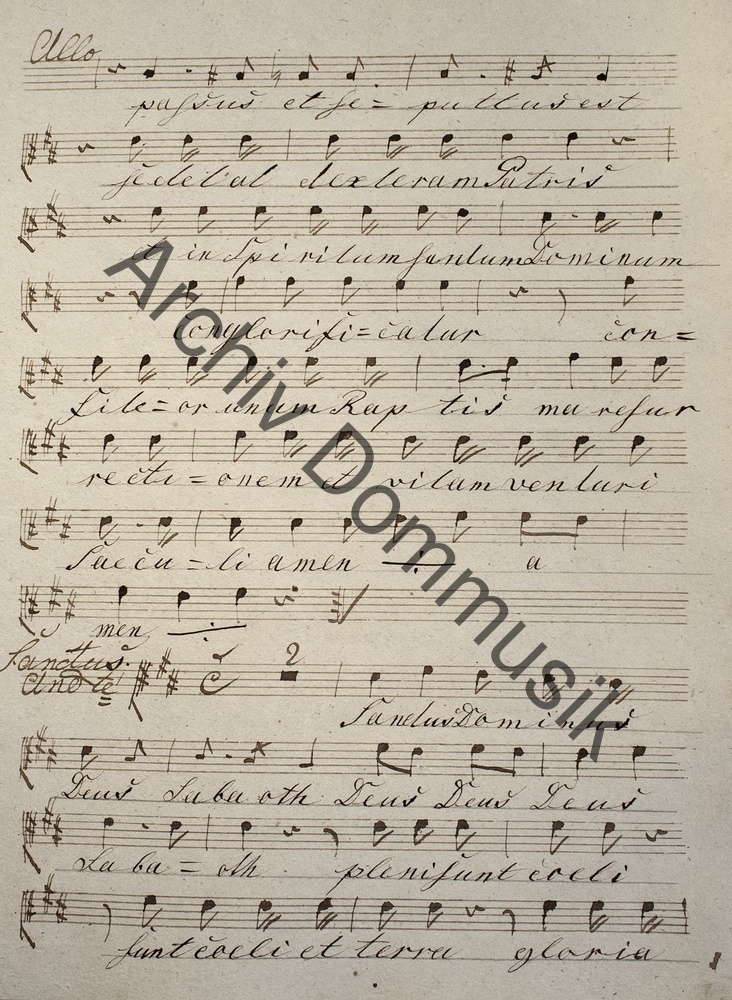 Allo
passus et se = pultus est
sedet ad dexteram Patris
et in Spi ritum sanctum Dominum
conglorifi = catur con =
fite = or unum Bap tis ma resur
recti = onem et vitam venturi
saecu = li amen ÷ a
men ÷
Sanctus.
Andte
2
Sanctus Dominus
Deus Saba oth Deus Deus Deus
Saba = oth pleni sunt coeli
sunt coeli et terra gloria
Archiv Dommusik